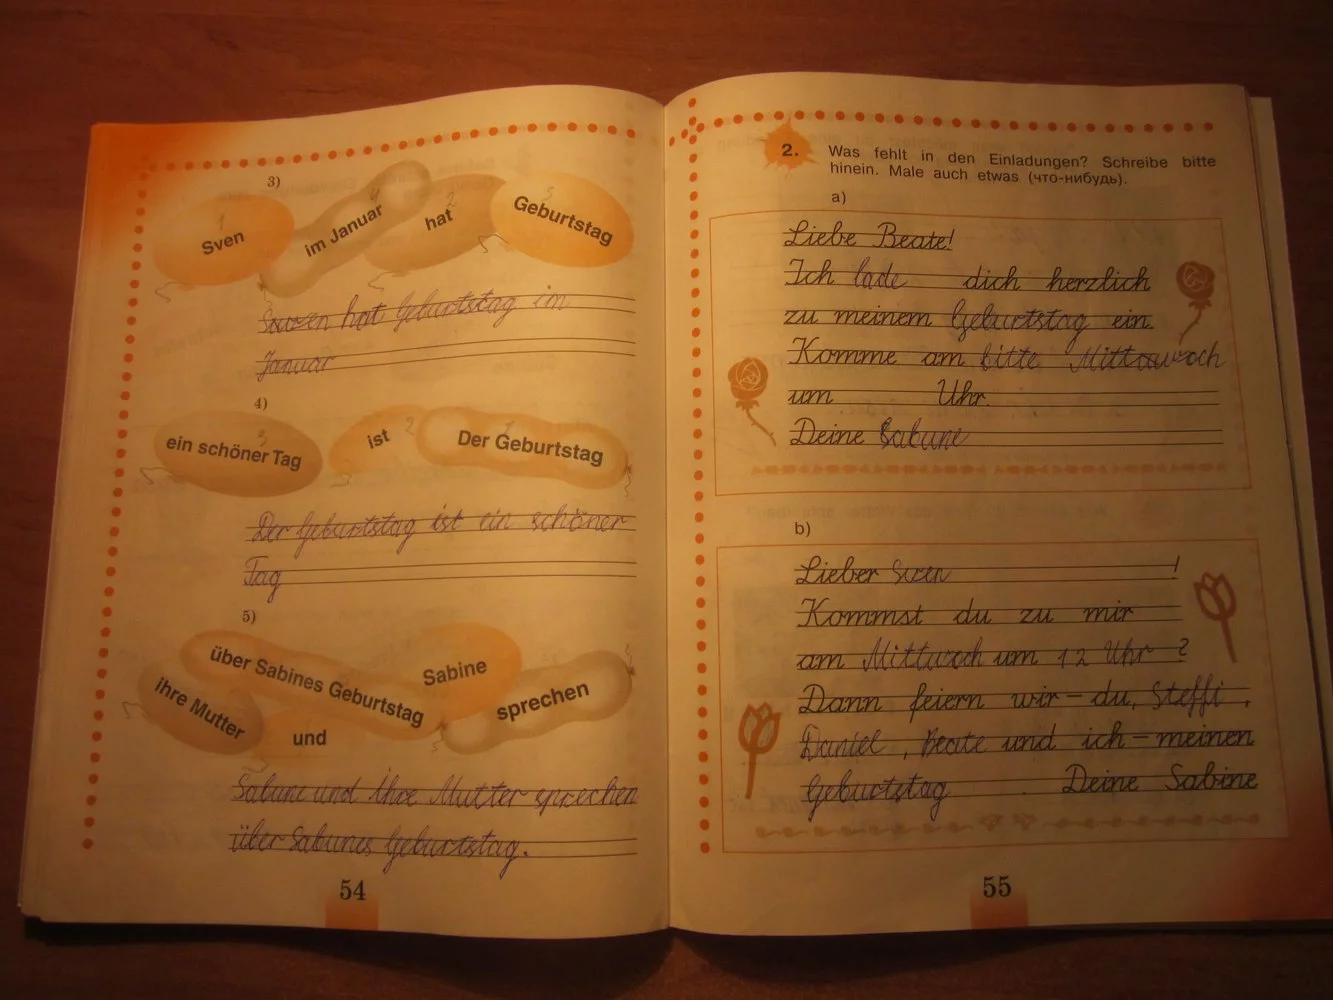 3)
Sven
1
im Januar
4
hat
2
Geburtstag
3
Swen hat Geburtstag im
Januar
4)
ein schöner Tag
3
ist
2
Der Geburtstag
1
Der Geburtstag ist ein schöner
Tag
5)
ihre Mutter
über Sabines Geburtstag
Sabine
und
sprechen
Sabine und Ihre Mutter sprechen
über Sabunes Geburtstag.
54
2. Was fehlt in den Einladungen? Schreibe bitte
hinein. Male auch etwas (что-нибудь).
a)
Liebe Beate!
Ich lade dich herzlich
zu meinem Geburtstag ein.
Komme am bitte Mittwoch
um Uhr.
Deine Sabune
b)
Lieber Swen !
Kommst du zu mir
am Mittwoch um 12 Uhr ?
Dann feiern wir – du, Steffi ,
Daniel , Beate und ich – meinen
Geburtstag . Deine Sabine
55